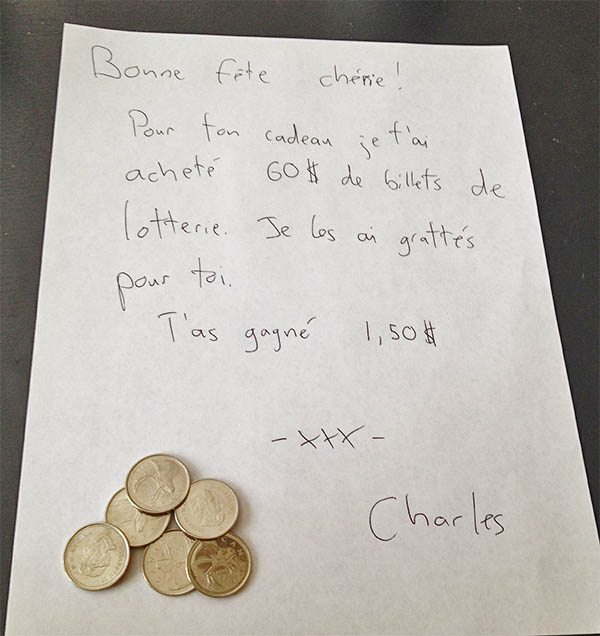 Bonne fête chérie!
Pour ton cadeau je t'ai
acheté 60$ de billets de
lotterie. Je les ai grattés
pour toi.
T'as gagné 1,50$
- xxx -
Charles